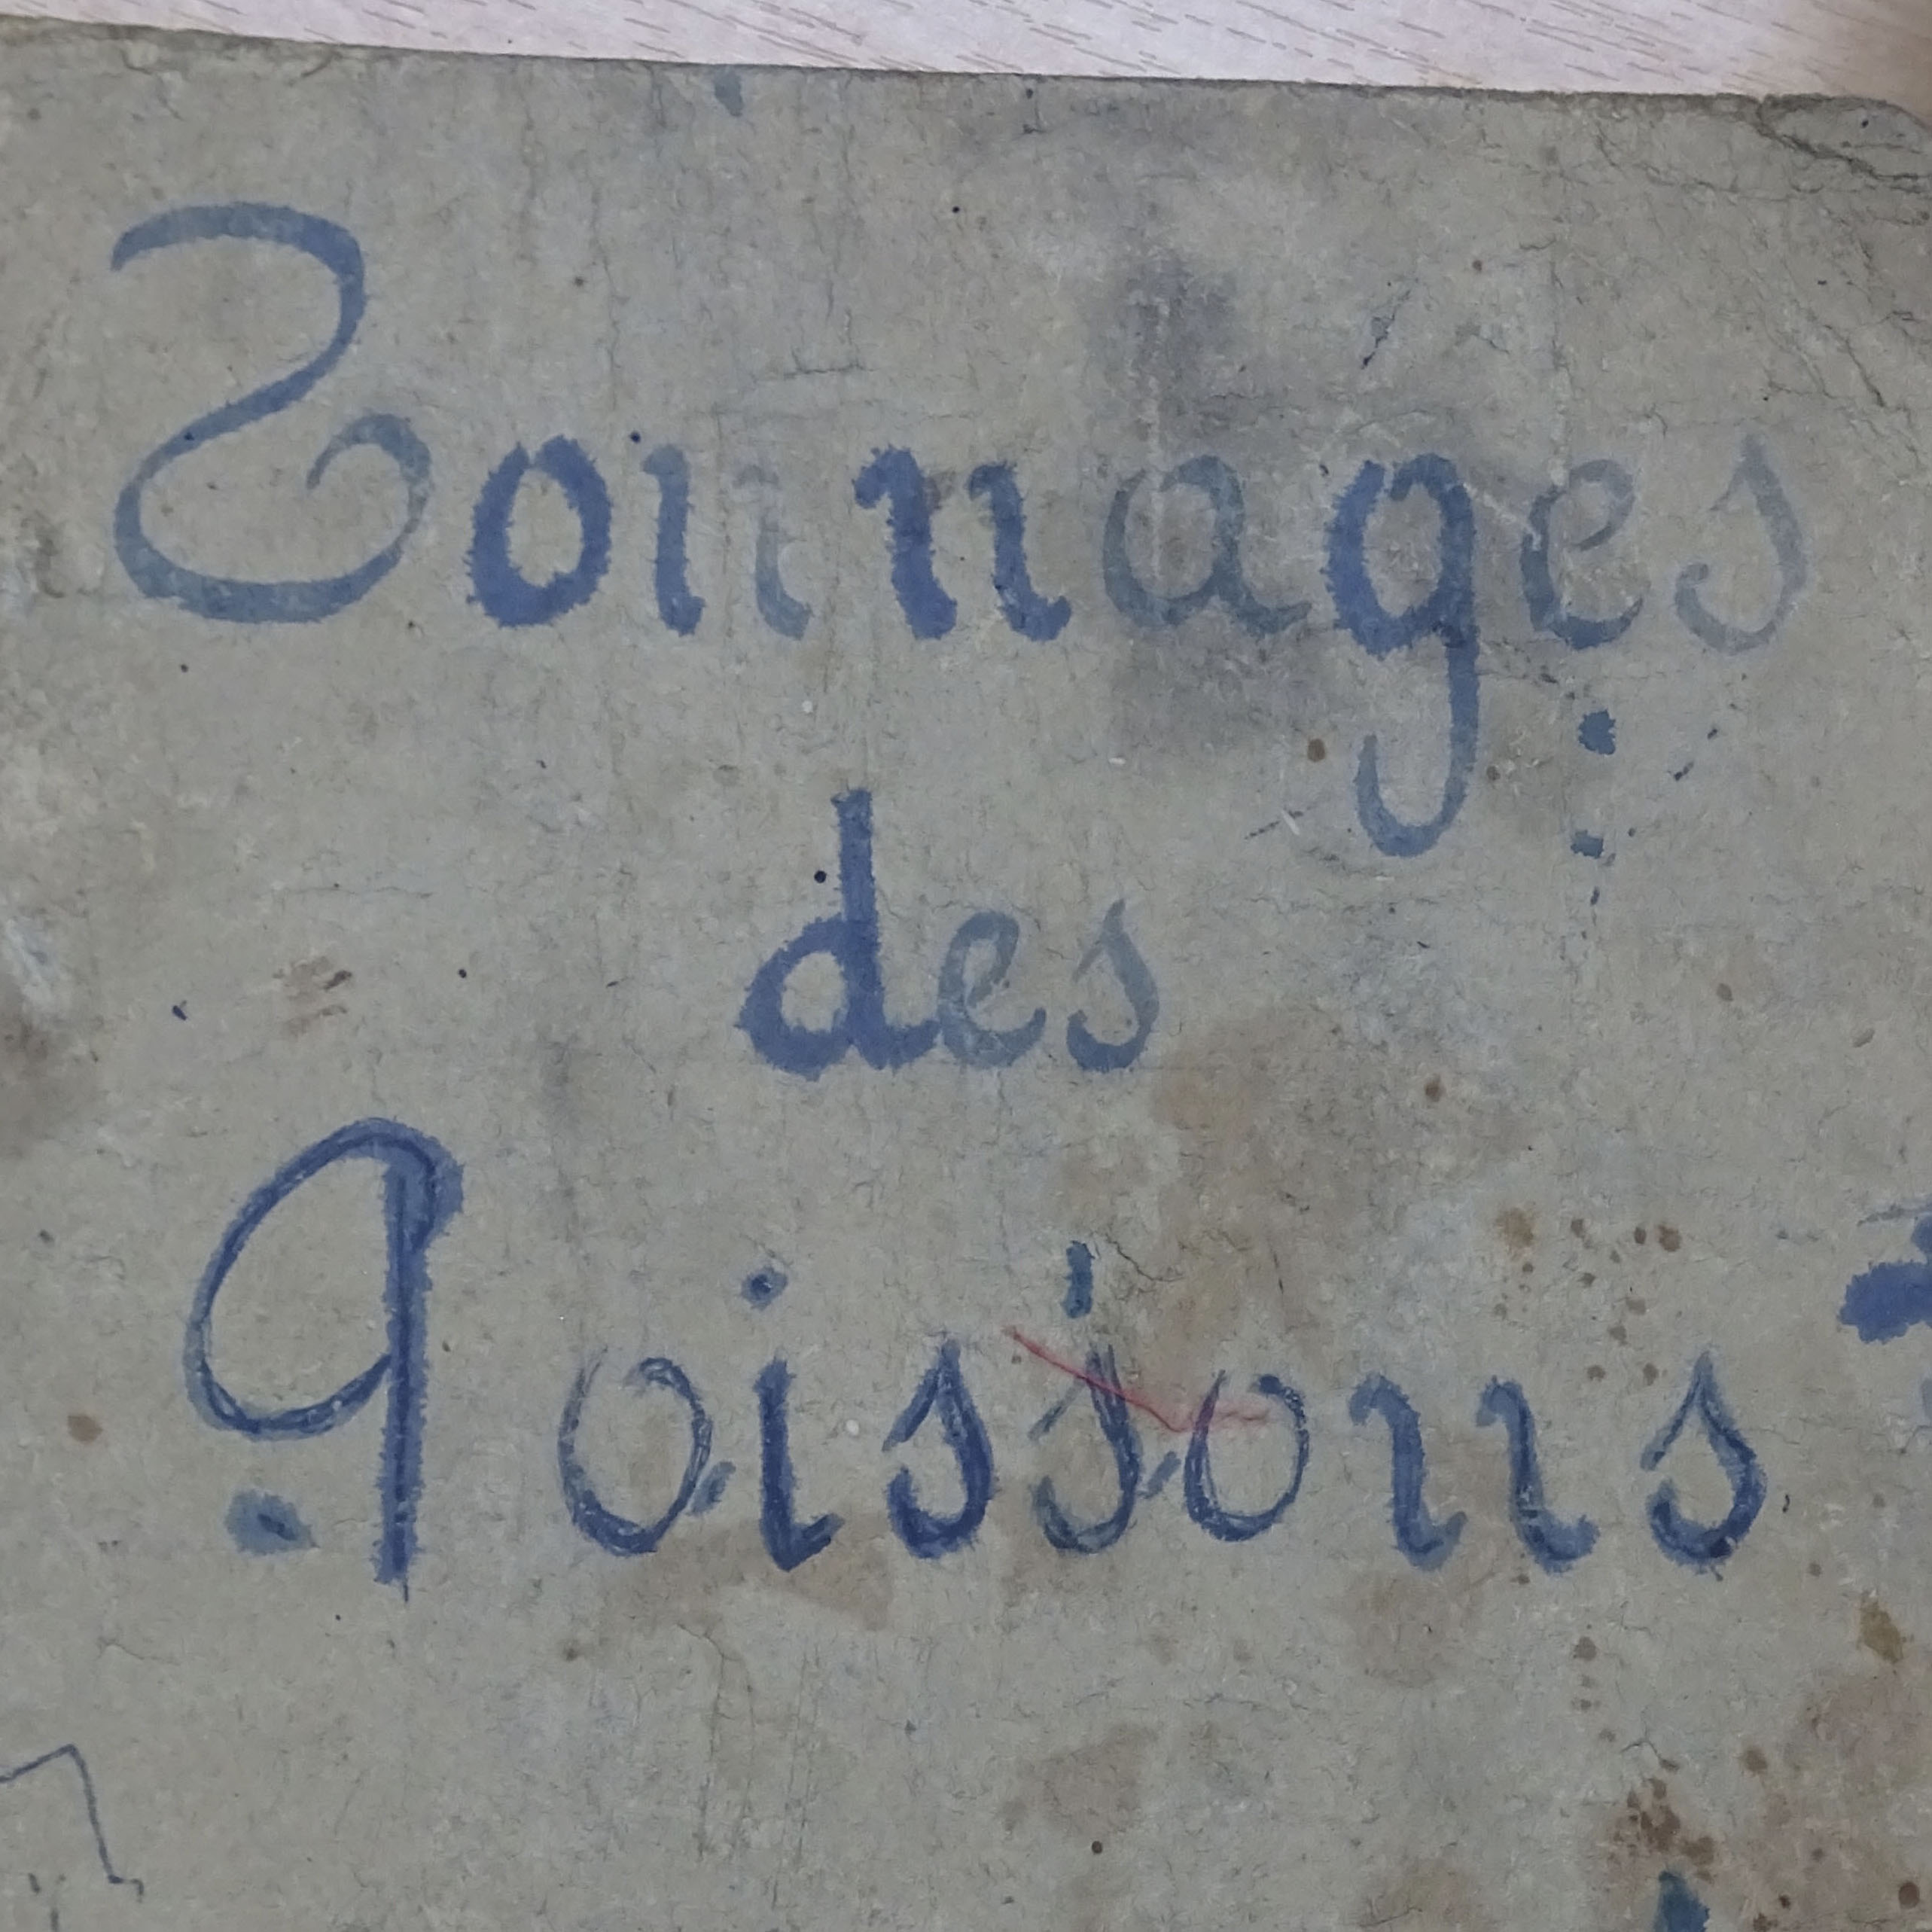 Tonnages
des
Poissons